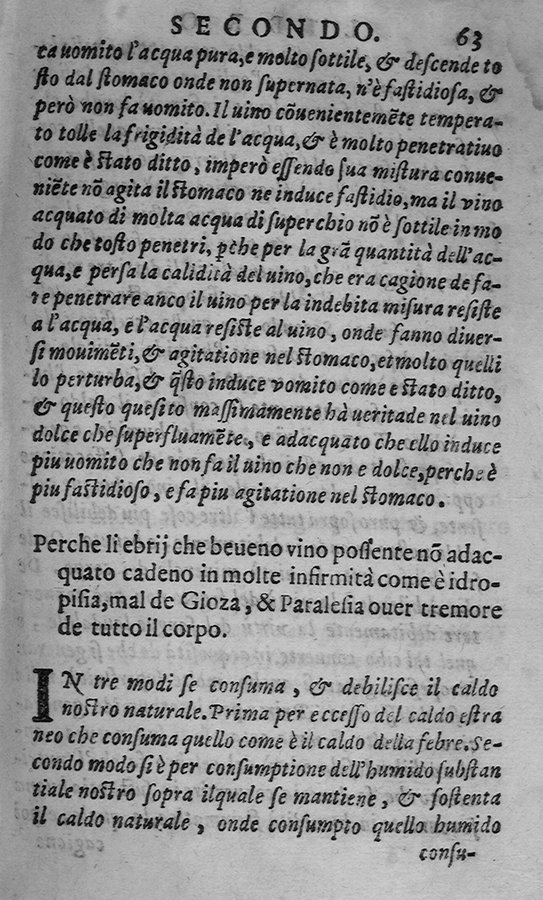 SECONDO. 63
ca uomito l'acqua pura, e molto sottile, & descende to
sto dal stomaco onde non supernata, n'è fastidiosa, &
però non fa uomito. Il uino cōuenientemẽte tempera-
to tolle la frigidità de l'acqua, & è molto penetratiuo
come è stato ditto, imperò essendo sua mistura conue-
niẽte nō agita il stomaco ne induce fastidio, ma il vino
acquato di molta acqua di superchio nō è sottile in mo
do che tosto penetri, ꝑche per la grā quantità dell'ac-
qua, e persa la calidità del uino, che era cagione de fa-
re penetrare anco il uino per la indebita misura resiste
a l'acqua, e l'acqua resiste al uino, onde fanno diuer-
si mouimẽti, & agitatione nel stomaco, et molto quelli
lo perturba, & q̃sto induce vomito come e stato ditto,
& questo quesito massimamente hà ueritade nel uino
dolce che superfluamẽte, e adacquato che ello induce
piu uomito che non fa il uino che non e dolce, perche è
piu fastidioso, e fa piu agitatione nel stomaco.
Perche li ebrij che beueno vino possente nō adac-
quato cadeno in molte infirmità come è idro-
pisia, mal de Gioza, & Paralesia ouer tremore
de tutto il corpo.
IN tre modi se consuma, & debilisce il caldo
nostro naturale. Prima per eccesso del caldo estra
neo che consuma quello come è il caldo della febre. Se-
condo modo si è per consumptione dell'humido substan
tiale nostro sopra ilquale se mantiene, & sostenta
il caldo naturale, onde consumpto quello humido
consu-